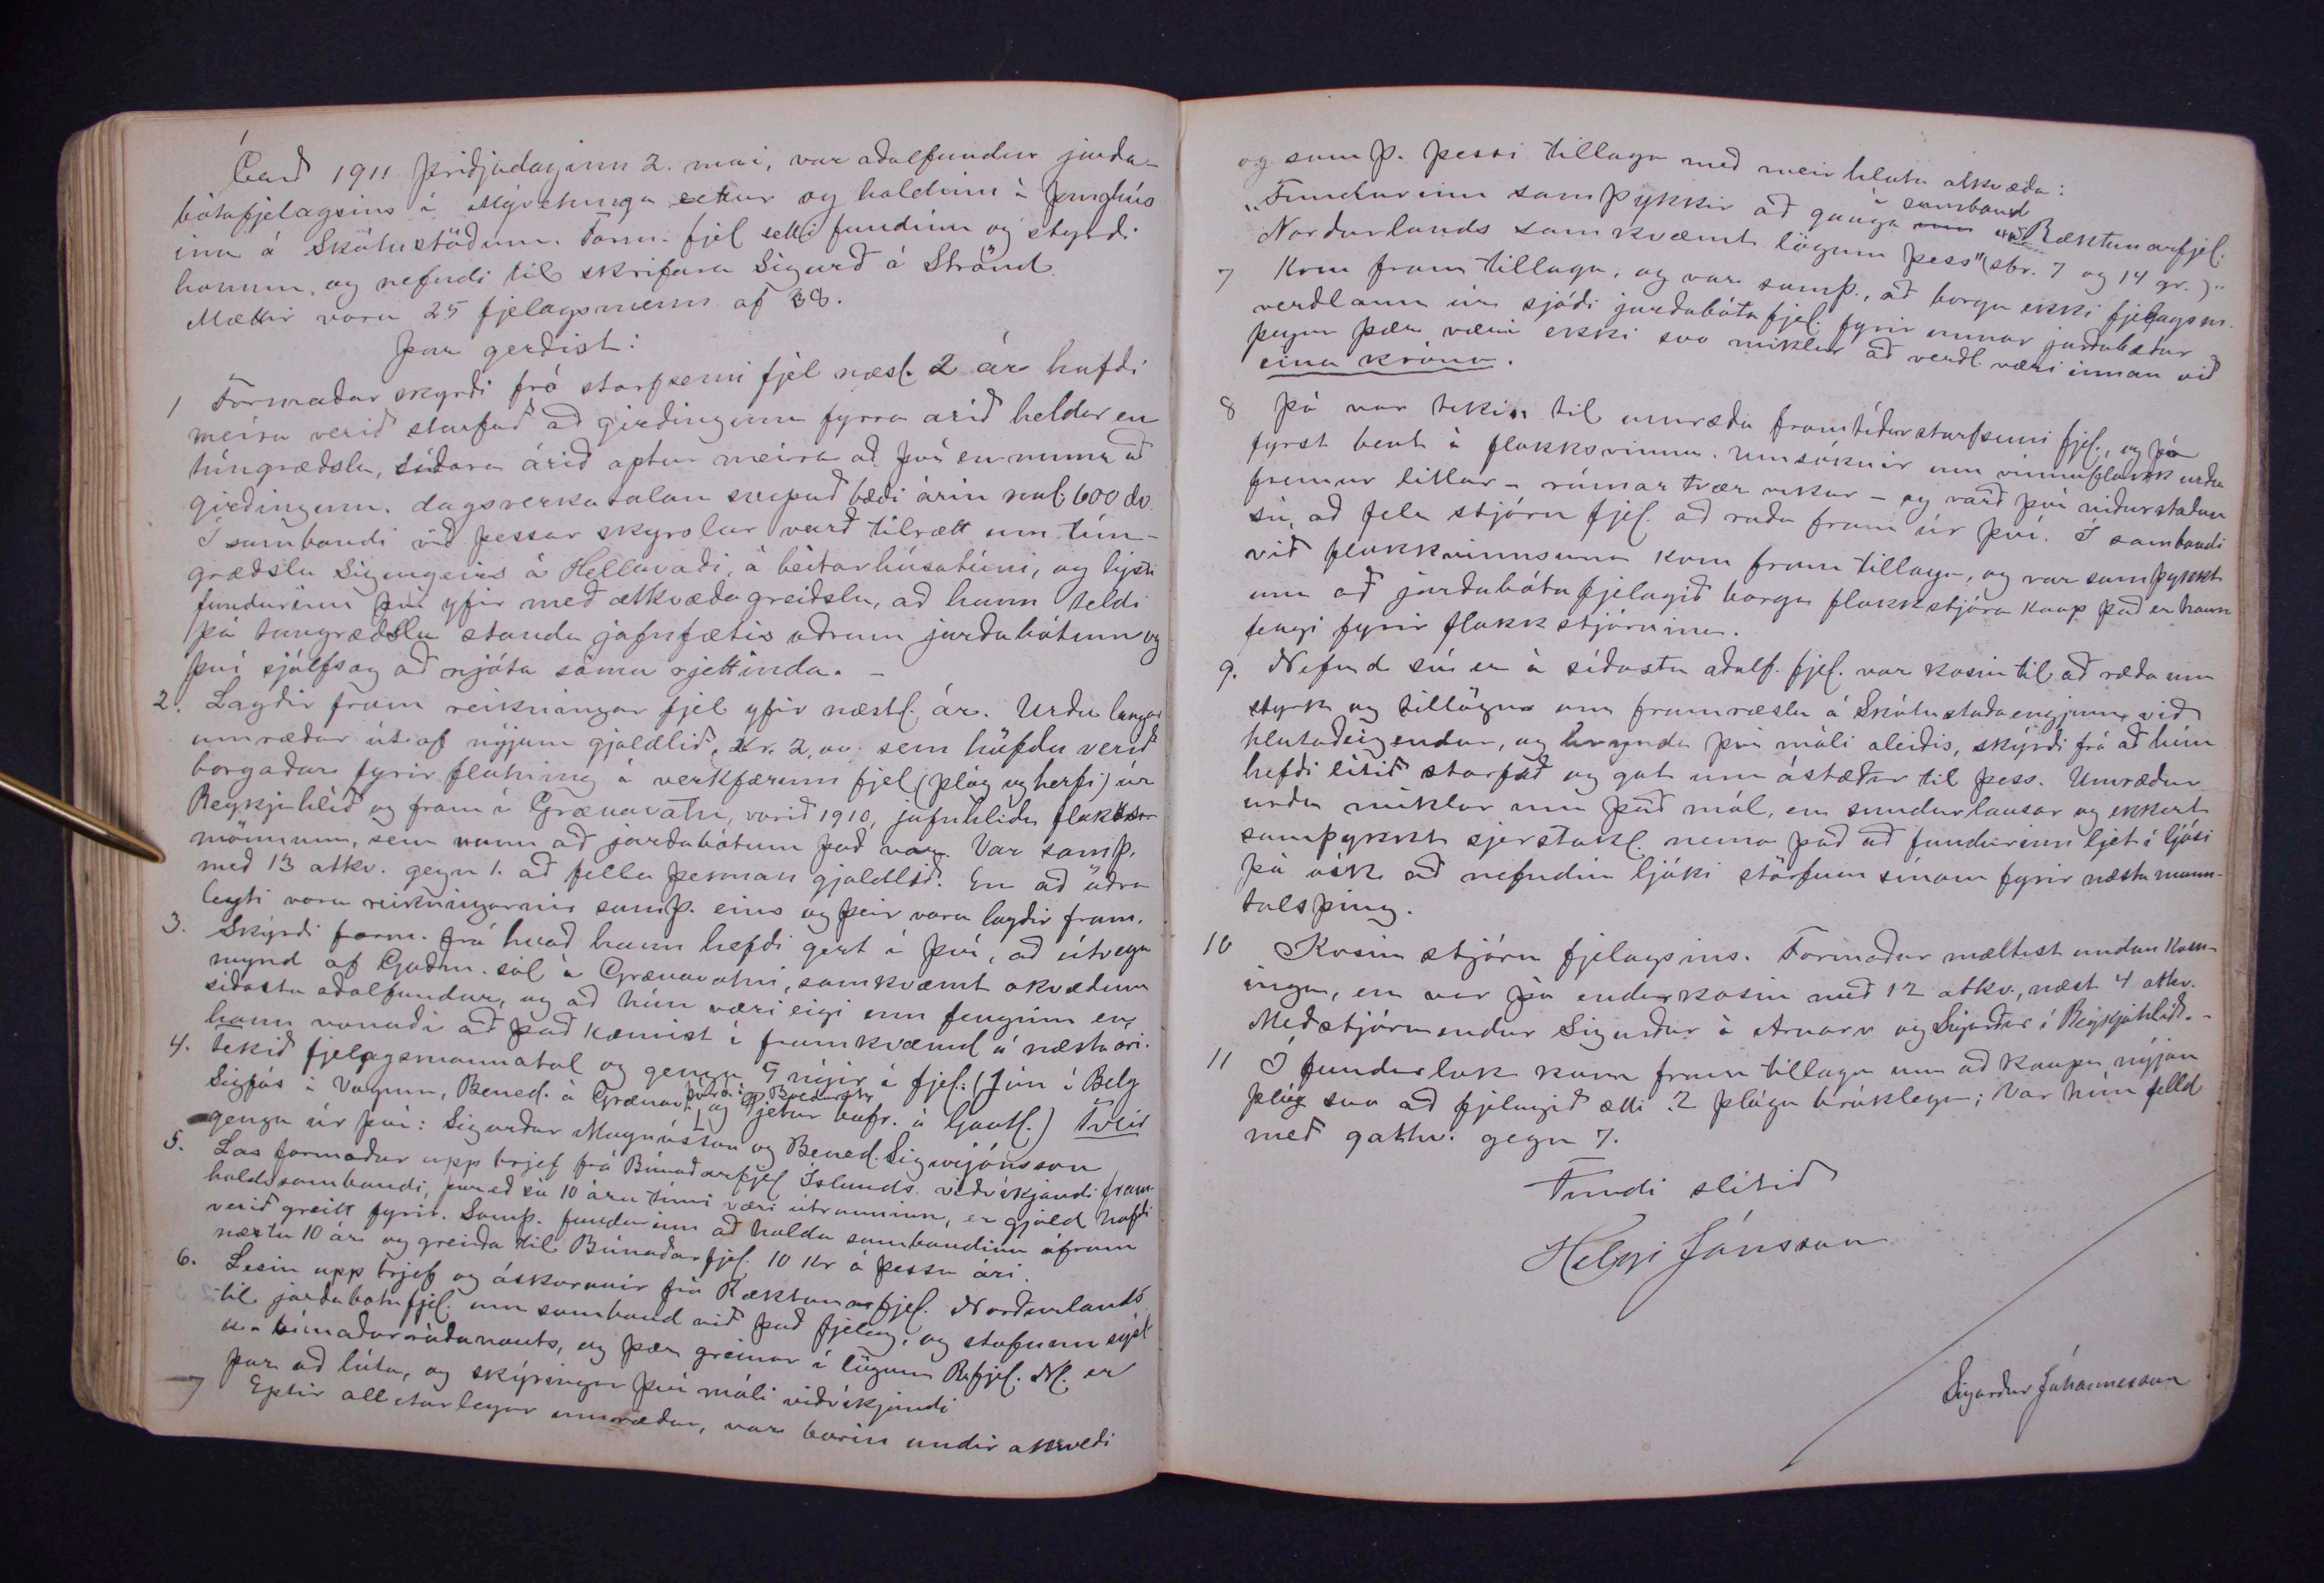 Árið 1911 þriðjudaginn 2. mai, var aðalfundur jarða-
bótafjelagsins í Mývetninga settur og haldinn í þinghús
inu á Skútustöðum. Form. fjel setti fundinn og stýrði
honum, og nefndi til skrifara Sigurð á Strönd.
Mættir voru 25 fjelagsmenn af 38.
Þar gerðist:
1 Formaður skyrði frá starfsemi fjel næstl. 2 ár hafði
meira verið starfað að girðingum fyrra árið heldur en
túngræðslu, síðara árið aptur meira að því en minna að
girðingum. dagsverkatalan svipuð bæði árin nál. 600 dv.
Í sambandi við þessar skyrslur varð tilrætt um tún-
græðslu Sigurgeirs á Hellavaði, á beitarhúsatúni, og lýsti
fundurinn því yfir með atkvæðagreiðslu, að hann teldi
þá tungræðslu standa jafnfætis öðrum jarðabótum og
því sjálfsag að njóta sömu rjettinda. –
2. Lagðir fram reikningar fjel yfir næstl. ár. Urðu langar
umræður útaf nýjum gjaldlið, Kr. 2,00. sem höfðu verið
borgaðar fyrir flutning á verkfærum fjel (plóg og herfi) úr
Reykjahlíð og fram í Grænavatn, vorið 1910, jafnhliða flokks-
mönnum, sem unnu að jarðabótum það vor. Var samþ.
með 13 atkv. gegn 1. að fella þennan gjaldlið. En að öðru
leyti voru reikningarnir samþ. eins og þeir voru lagðir fram.
3. Skýrði form. frá hvað hann hefði gert í því, að útvega
mynd af Guðm. sál á Grænavatni, samkvæmt ákvæðum
síðasta aðalfundar, og að hún væri eigi enn fenginn en
hann vonaði að það kæmist í framkvæmd á næsta ári.
4. Tekið fjelagsmannatal og gengu 5 nýjir í fjel: (Jón í Belg
Sigfús á Vogum, Bened. á Grænav., og Pjetur bufr. á Gautl.) Tveir
gengu úr því: Sigurður Magnússon og Bened. Sigurjónsson
5. Las formaður upp brjef frá Búnaðarfjel Íslands. viðvíkjandi fram-
haldssambandi, þareð sú 10 ára tími væri útrunninn, er gjald hafði
verið greitt fyrir. Samþ. fundurinn að halda sambandinu áfram
næstu 10 ár og greiða til Búnaðarfjel. 10 Kr á þessu ári.
6. Lesin upp brjef og áskoranir frá Ræktunarfjel. Norðurlands
til jarðabótafjel. um samband við það fjelag, og stofnun sýsl
u-búnaðarráðanauts, og þær greinar í lögum Rfjel. Nl. er
þar að lúta, og skýringar því máli viðvíkjandi
Eptir allítarlegar umræður, var borin undir atkvæði
og samþ. þessi tillaga með meir hluta atkvæða:
„Fundurinn samþykkir að ganga í samband við Ræktunarfjel.
Norðurlands samkvæmt lögum þess" (sbr. 7 og 14 gr.)"
7 Kom fram tillaga, og var samþ., að borga ekki fjelagsm.
verðlaun úr sjóði jarðabótafjel. fyrir unnar jarðabætur
þegar þær væru ekki svo miklar að verðl. væri innan við
eina krónu.
8 Þá var tekin til umræðu framtíðarstarfsemi fjel., og þá
fyrst bent á flokksvinnu. Umsóknir um vinnuflokk urðu
fremur litlar – rúmar tvær vikur – og varð því niðurstaðan
sú, að fela stjórn fjel. að ráða fram úr því. Í sambandi
við flokkvinnuna kom fram tillaga, og var samþykkt
um að jarðabótafjelagið borga flokkstjóra kaup það er hann
fengi fyrir flokkstjórnina.
9. Nefnd sú er á síðasta aðalf. fjel. var kosin til að ræða um
styrk og tillögur um framræslu á Skútustaðaengjum við
hlutaðeigendur, og hrynda því máli áleiðis, skýrði frá að hún
hefði lítið starfað og gat um ástæður til þess. Umræður
urðu miklar um það mál, en sundurlausar og ekkert
samþykkt sjerstakl. nema það að fundurinn ljet í ljósi
þá ósk að nefndin ljúki störfum sínum fyrir næsta mann-
talsþing.
10 Kosin stjórn fjelagsins. Formaður mæltist undan kosn-
ingu, en var þó endurkosin með 12 atkv., næst 4 atkv.
Meðstjórnendur Sigurður á Arnarv og Sigurður í Reykjahlíð. –
11 Í fundarlok kom fram tillaga um að kaupa nýjan
plóg svo að fjelagið ætti 2 plóga brúklega; Var hún felld
með 9 atkv. gegn 7.
Fundi slitið
Helgi Jónsson
Sigurður Jóhannesson